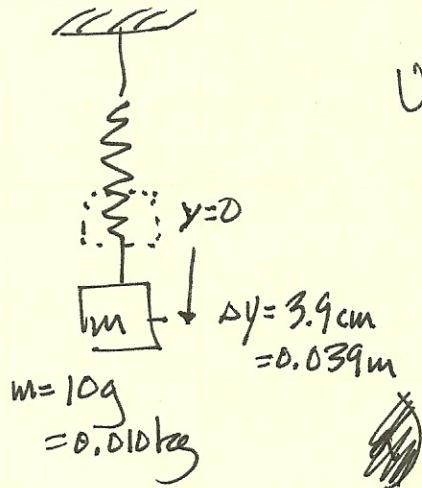 U
y=0
m
Δy = 3.9 cm
= 0.039 m
m = 10g
= 0.010 kg